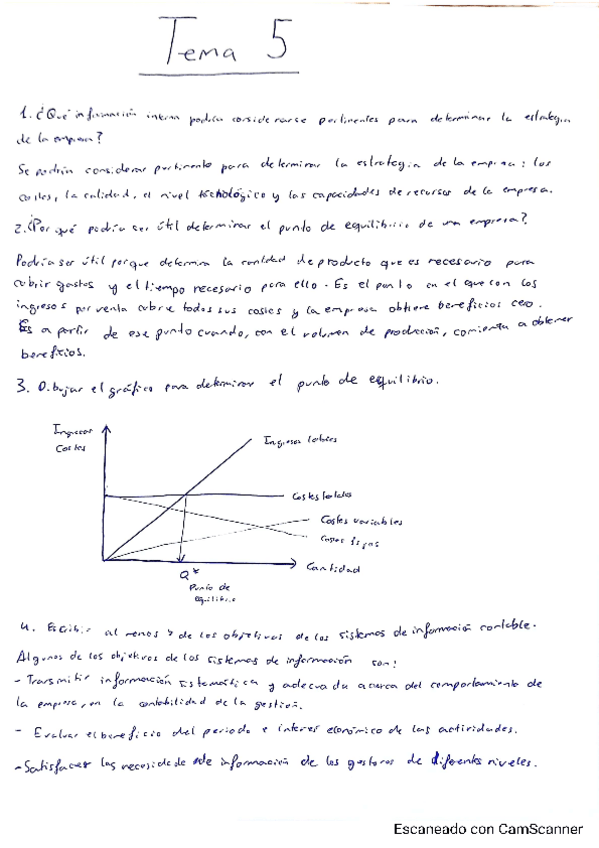 Tema 5
1. ¿Qué información interna podría considerarse pertinentes para determinar la estrategia
de la empresa?
Se podrían considerar pertinente para determinar la estrategia de la empresa: los
costes, la calidad, el nivel tecnológico y las capacidades de recursos de la empresa.
2. ¿Por qué podría ser útil determinar el punto de equilibrio de una empresa?
Podría ser útil porque determina la cantidad de producto que es necesario para
cubrir gastos y el tiempo necesario para ello. Es el punto en el que con los
ingresos por venta cubre todos sus costes y la empresa obtiene beneficios cero.
Es a partir de ese punto cuando, con el volumen de producción, comienza a obtener
beneficios.
3. Dibujar el gráfico para determinar el punto de equilibrio.
Ingresos
Costes
Ingresos totales
Costes totales
Costes variables
Costes fijos
Cantidad
Q*
Punto de
equilibrio
4. Escribir al menos de los objetivos de los sistemas de información contable.
Algunos de los objetivos de los sistemas de información son:
- Transmitir información sistemática y adecuada acerca del comportamiento de
la empresa, en la contabilidad de la gestión.
- Evaluar el beneficio del periodo e interés económico de las actividades.
- Satisfacer las necesidades de información de los gestores de diferentes niveles.
Escaneado con CamScanner